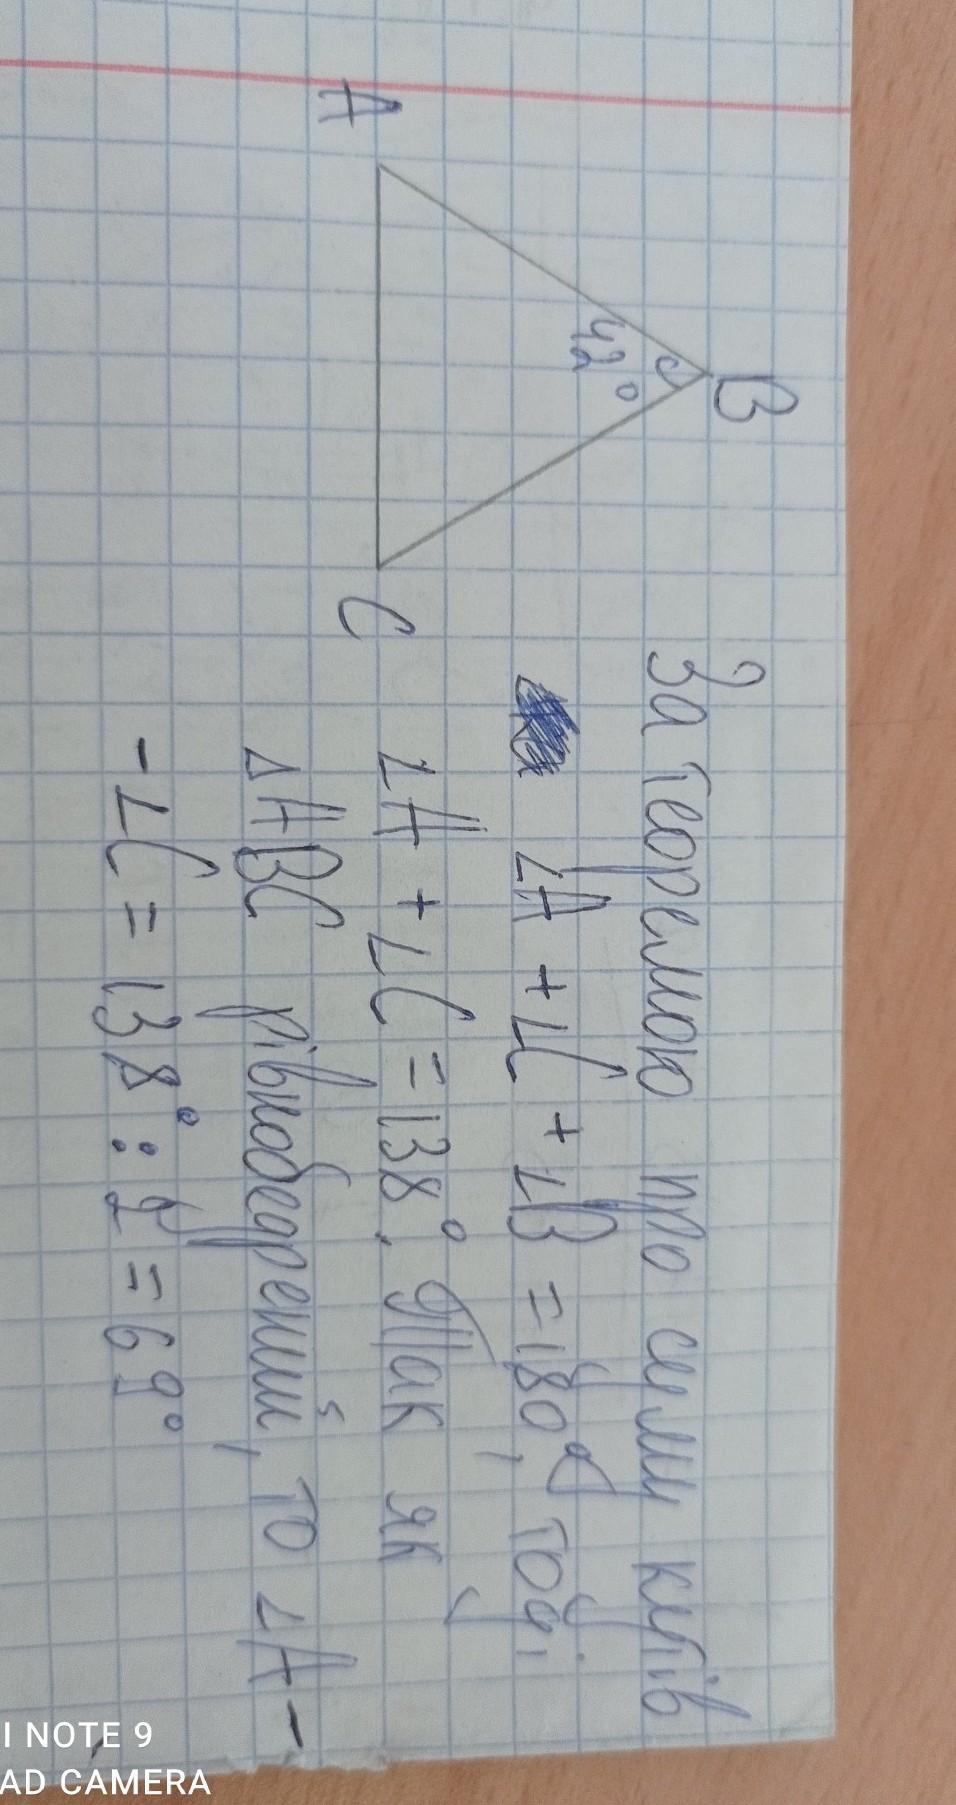 A
B
C
42°
За теоремою про суму кутів
∠A + ∠C + ∠B = 180°, тоді
∠A + ∠C = 138°. Так як
△ABC рівнобедрений, то ∠A -
- ∠C = 138° : 2 = 69°
I NOTE 9
AD CAMERA